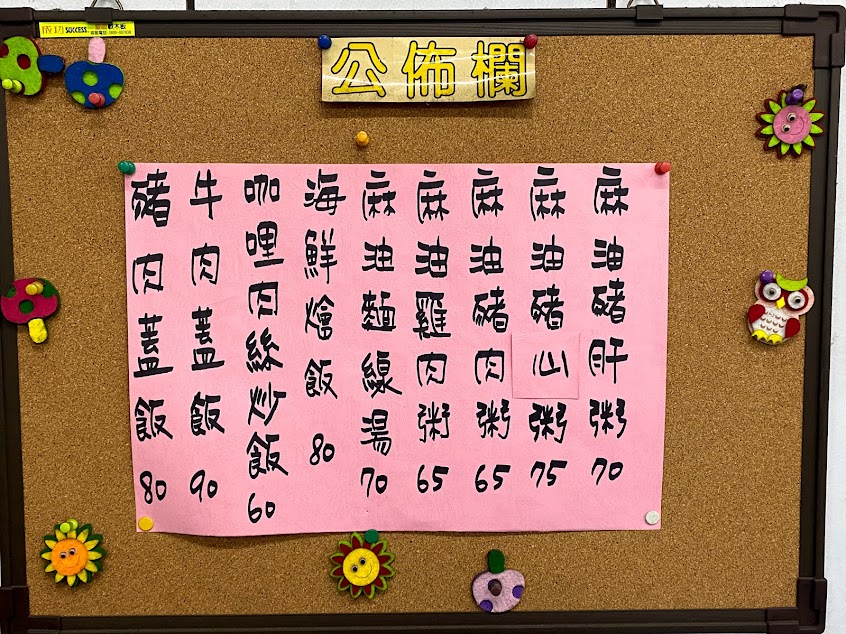 成功 SUCCESS
公佈欄
麻油豬肝粥70
麻油豬心粥75
麻油豬肉粥65
麻油雞肉粥65
麻油麵線湯70
海鮮燴飯80
咖哩肉絲炒飯60
牛肉蓋飯90
豬肉蓋飯80